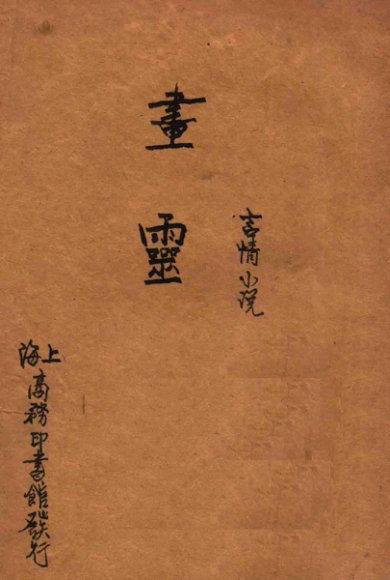 言情小说
畫靈
上海
商務印書館發行